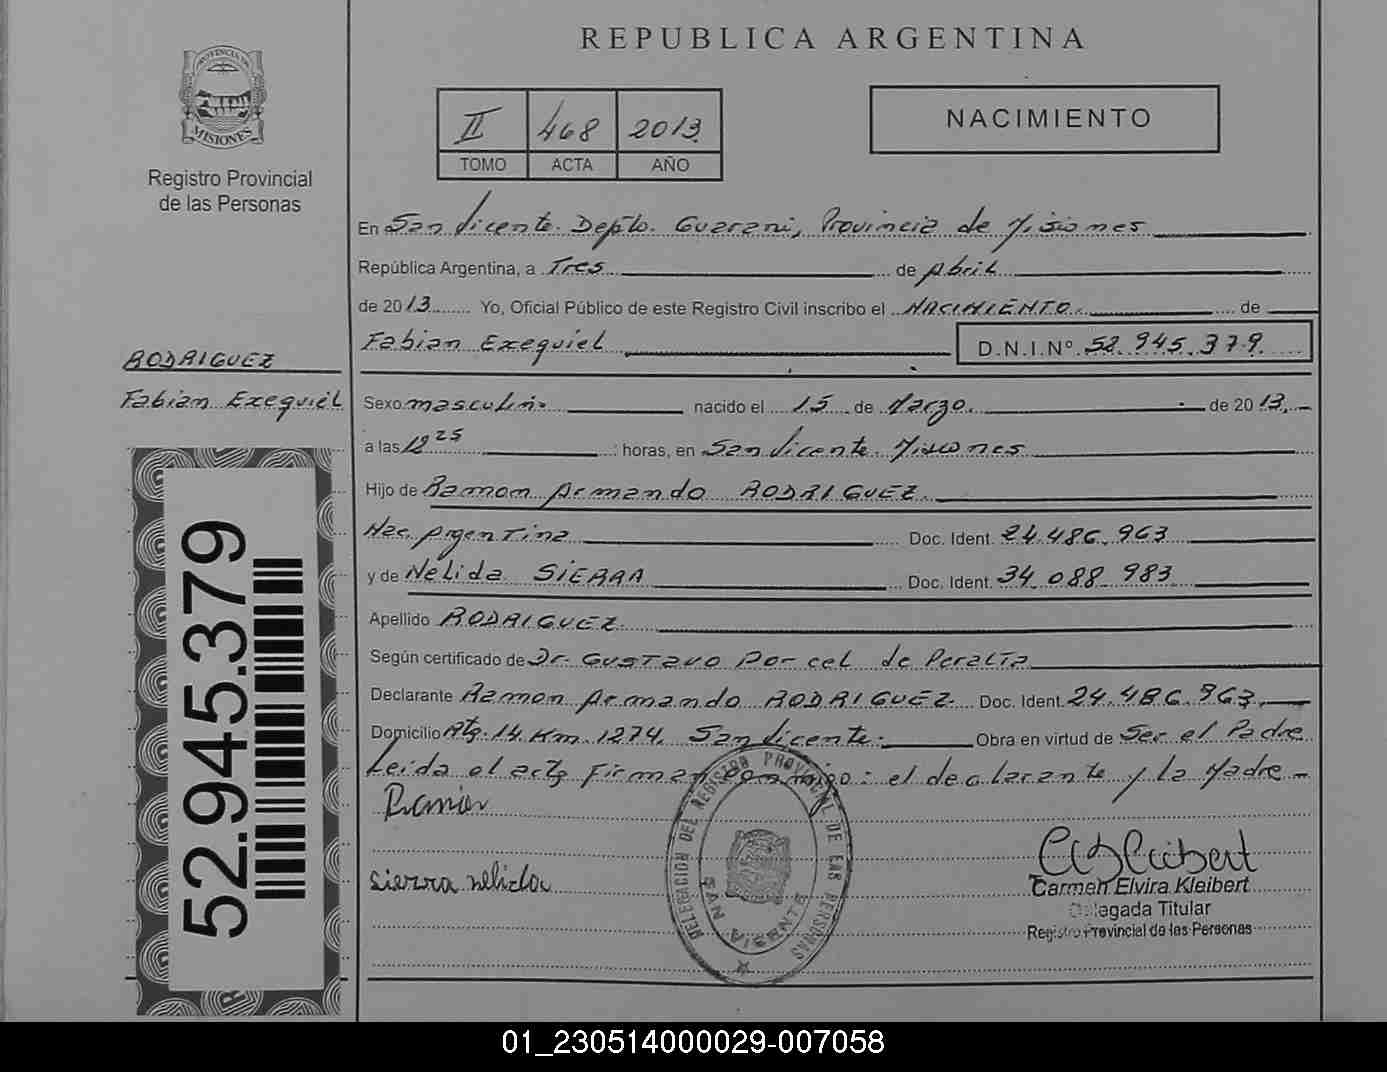 REPUBLICA ARGENTINA
PROVINCIA DE
MISIONES
Registro Provincial
de las Personas
II 468 2013
TOMO ACTA AÑO
NACIMIENTO
En San Vicente. Depto. Guarani, Provincia de Misiones
República Argentina, a Tres de Abril
de 2013 Yo, Oficial Público de este Registro Civil inscribo el NACIMIENTO. de
Fabian Exequiel D.N.I.Nº 52.945.379.
RODRIGUEZ
Fabian Exequiel
Sexo masculino nacido el 15 de Marzo de 2013.
a las 12 25 horas, en San Vicente. Misiones
Hijo de Ramon Armando RODRIGUEZ
Nac. Argentina Doc. Ident. 24.486.963
y de Nelida SIERRA Doc. Ident. 34.088.983
Apellido RODRIGUEZ.
Según certificado de Dr. GUSTAVO Porcel de Peralta
Declarante Ramon Armando RODRIGUEZ. Doc. Ident. 24.486.963.
Domicilio Ruta. 14. Km. 1274. San Vicente. Obra en virtud de Ser el Padre
Leida el acta Firman conmigo: el declarante y la Madre -
sierra nelida
DELEGACION DEL REGISTRO PROVINCIAL DE LAS PERSONAS
SAN VICENTE
Carmen Elvira Kleibert
Delegada Titular
Registro Provincial de las Personas
52.945.379
01_230514000029-007058